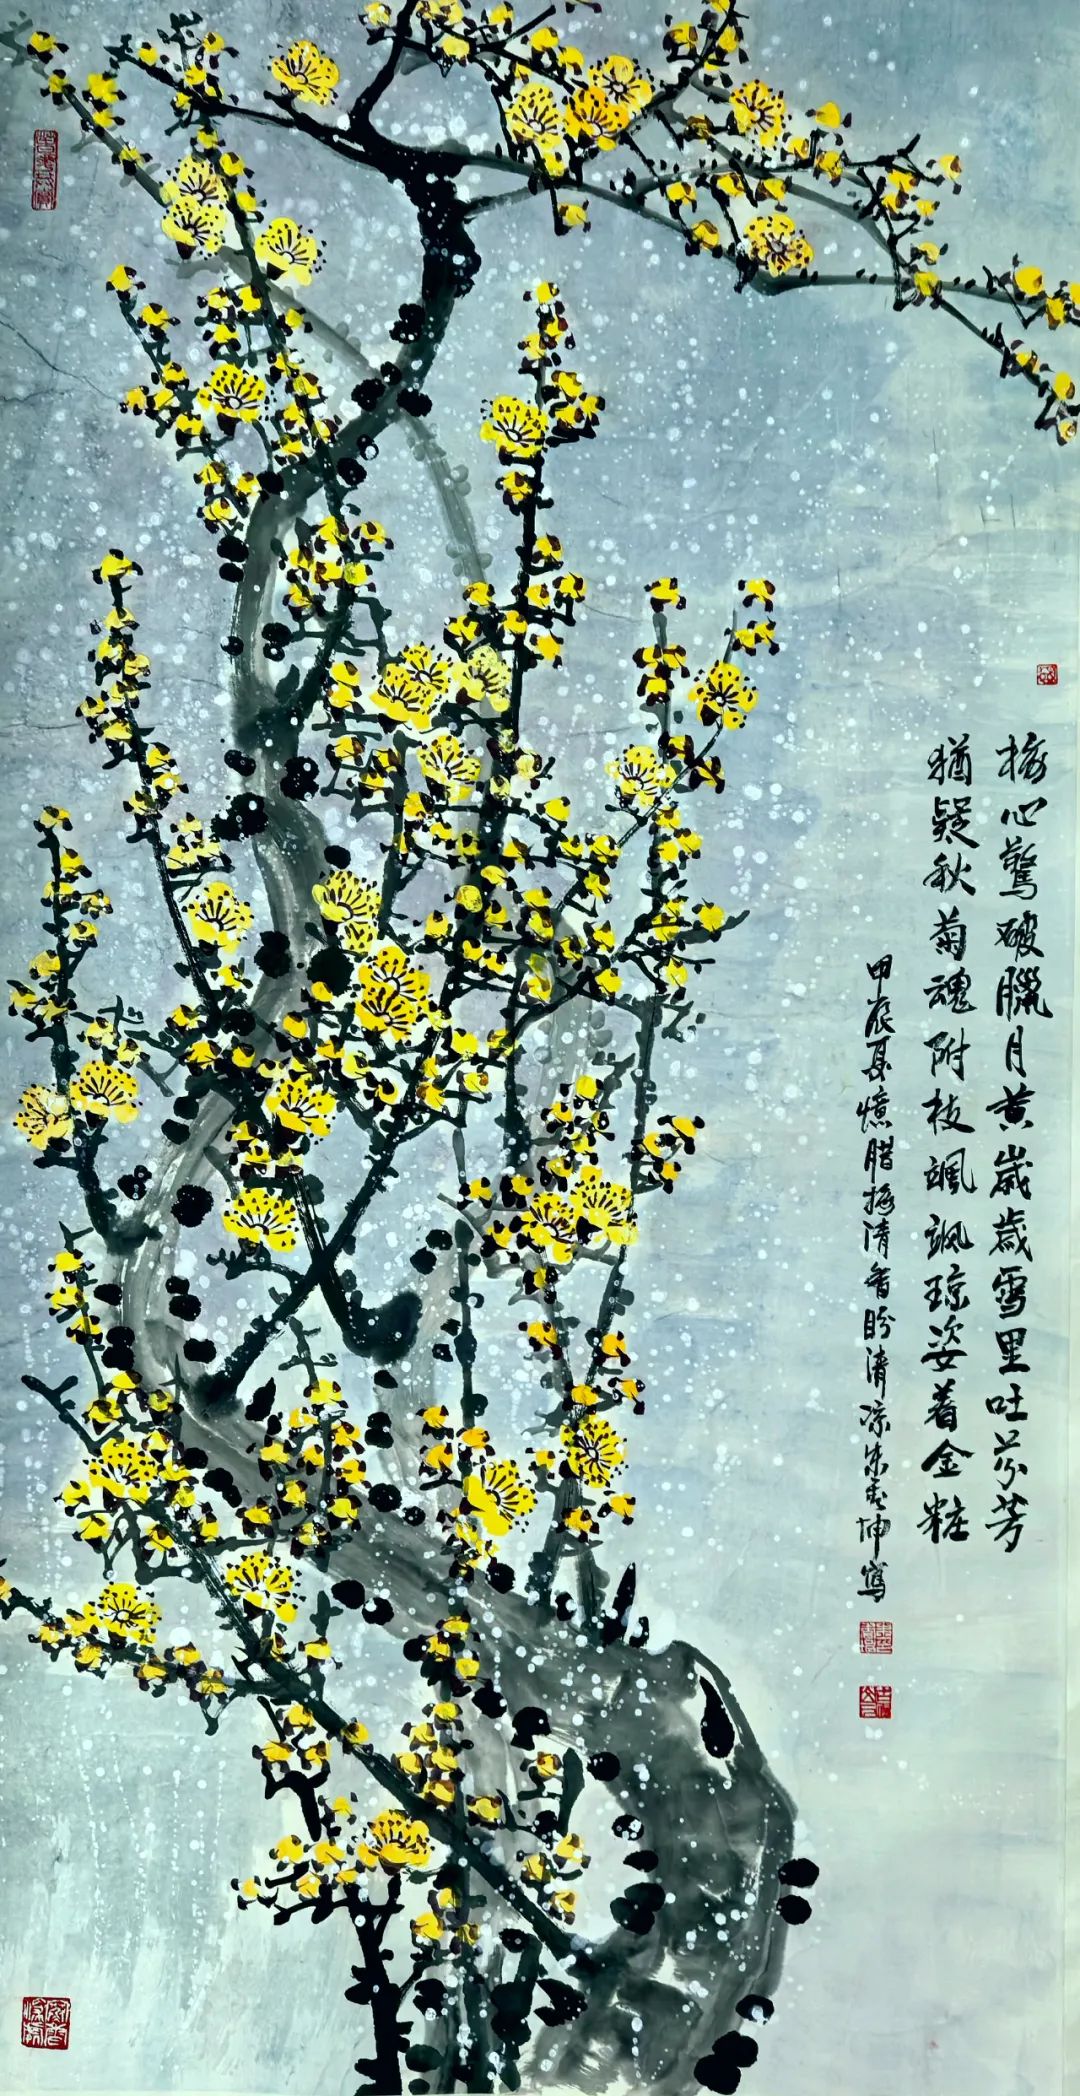 梅心驚破臘月黄歲歲雪里吐芬芳
猶疑秋菊魂附枝颯颯琼姿着金粧
甲辰夏憶腊梅清香盼清凉朱秀坤寫